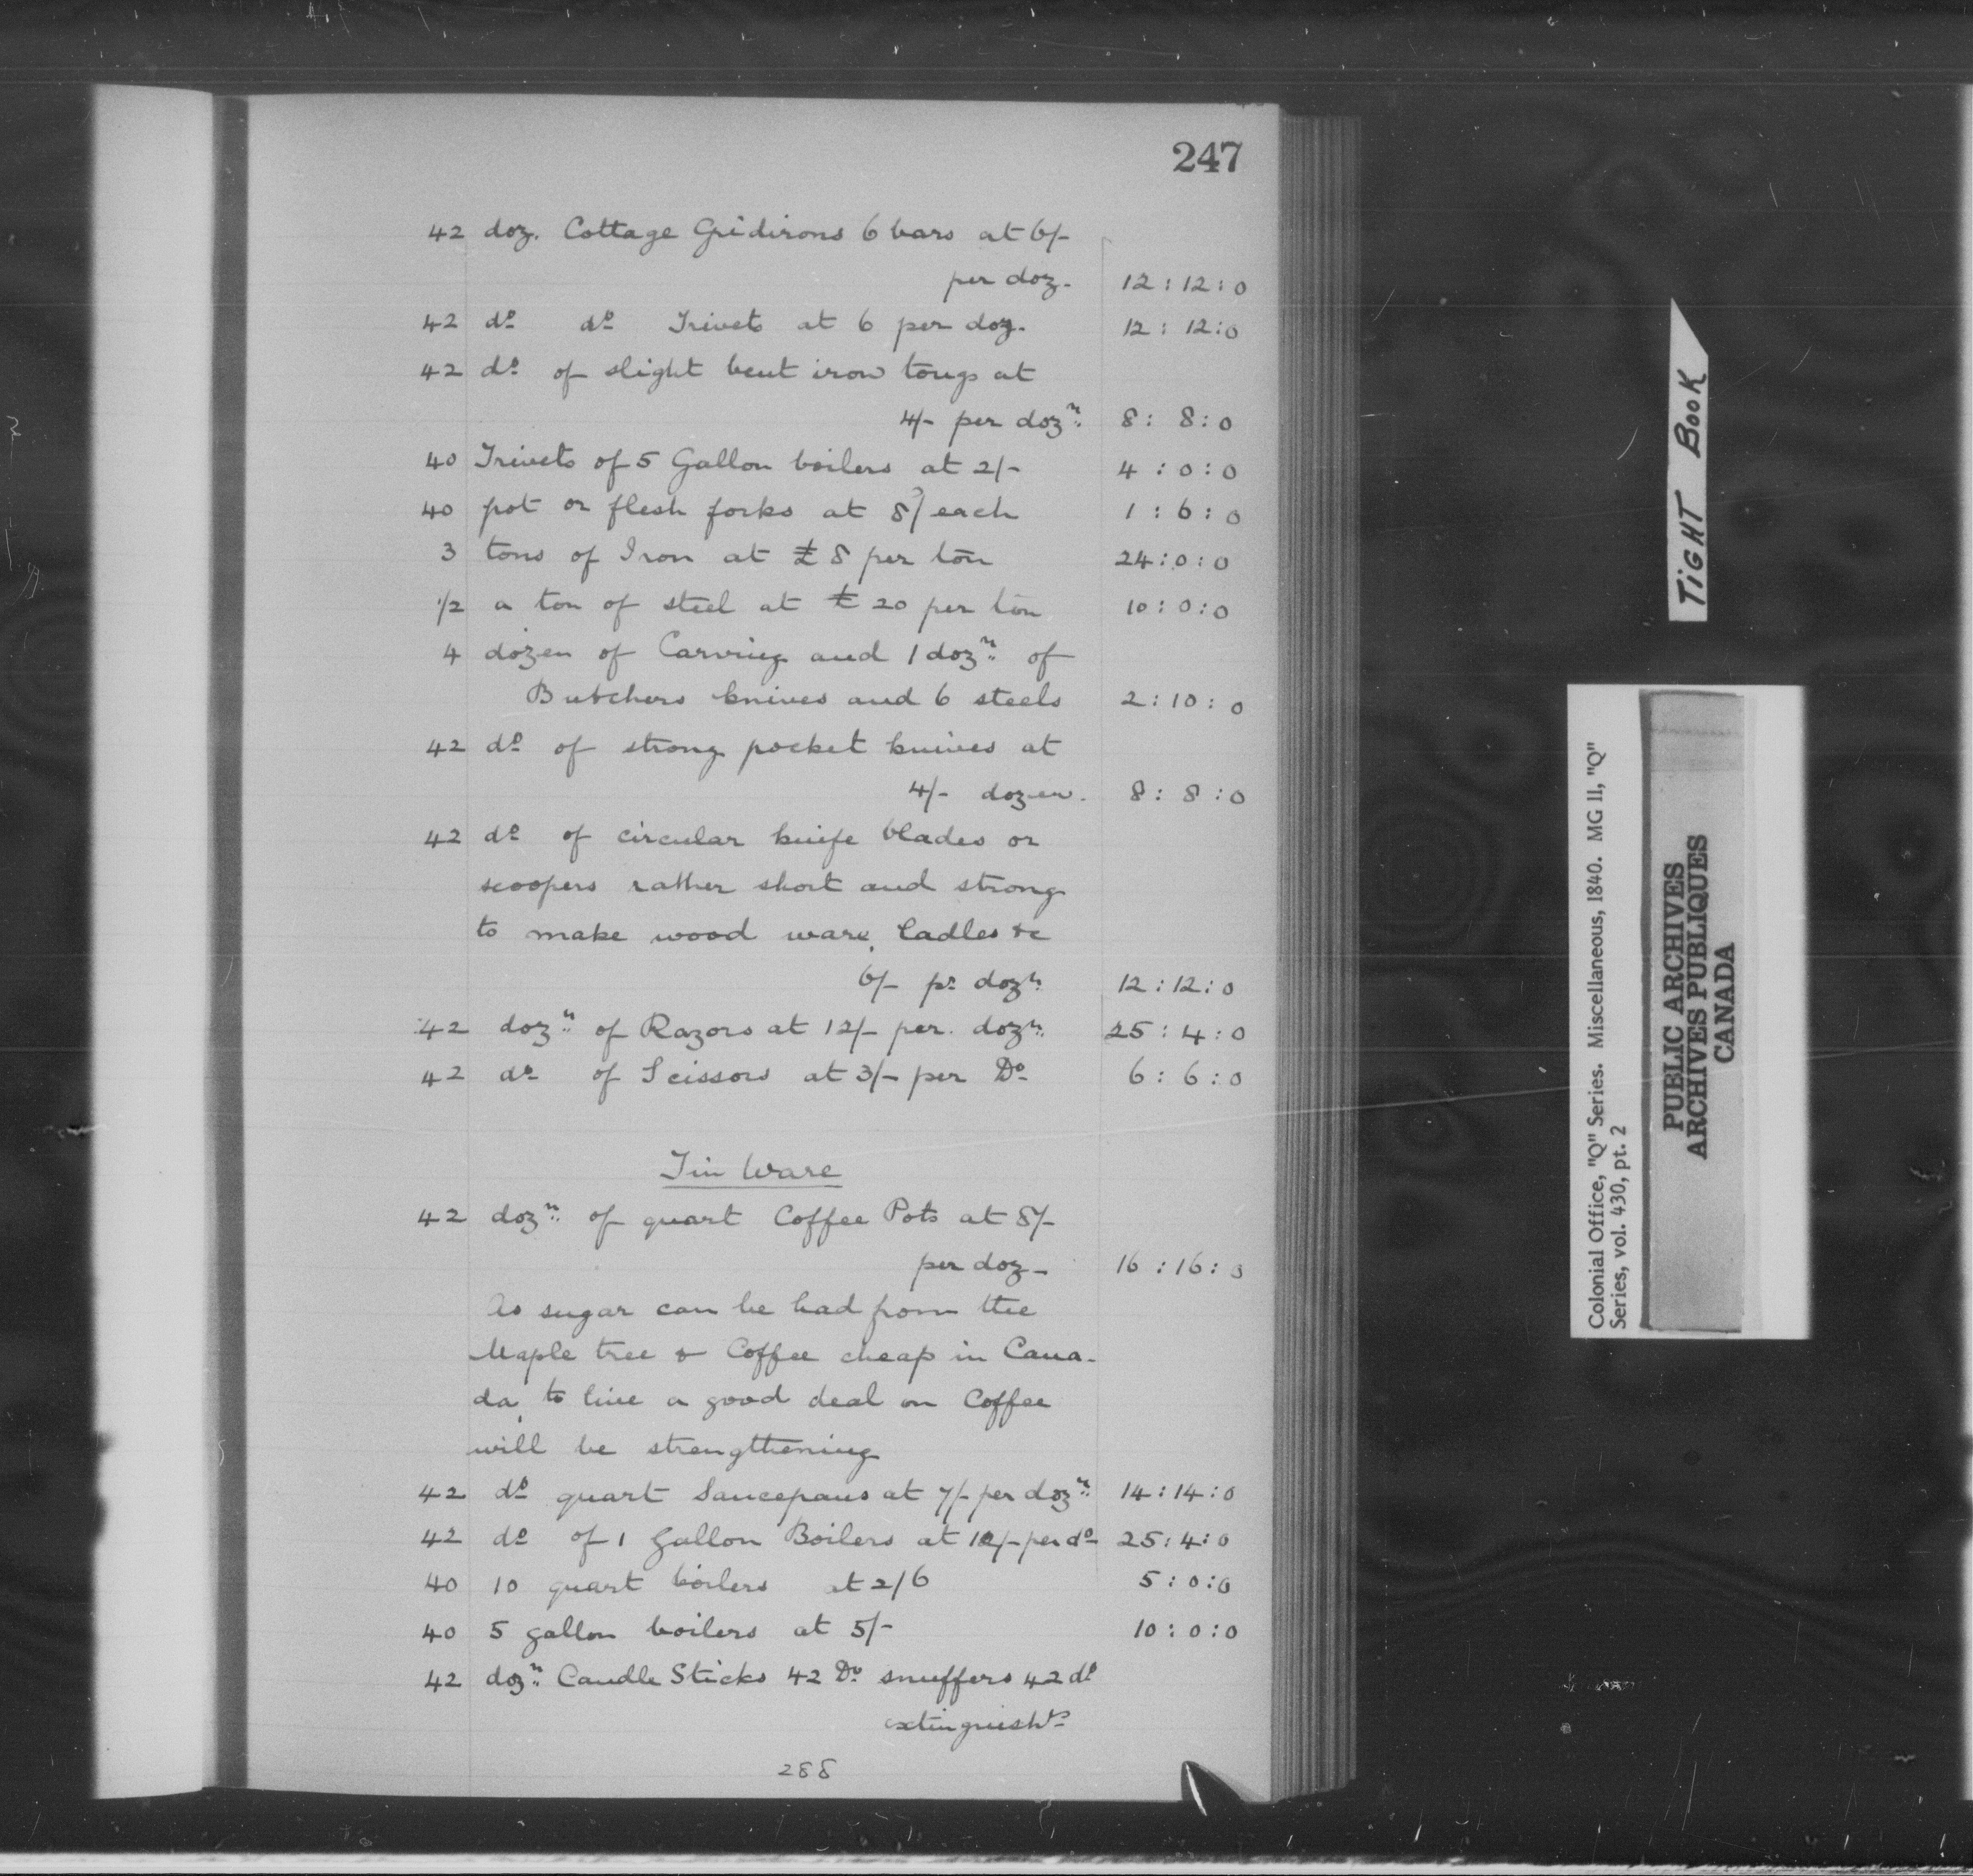 247
42 doz. Cottage Gridirons 6 bars at 6/-
per doz. 12:12:0
42 do do Trivets at 6 per doz. 12:12:0
42 do of slight bent iron tongs at
4/- per dozn 8:8:0
40 Trivets of 5 Gallon boilers at 2/- 4:0:0
40 pot or flesh forks at 8/ each 1:6:0
3 tons of Iron at £8 per ton 24:0:0
1/2 a ton of steel at £20 per ton 10:0:0
4 dozen of Carving and 1 dozn of
Butchers knives and 6 steels 2:10:0
42 do of strong pocket knives at
4/- dozen. 8:8:0
42 do of circular knife blades or
scoopers rather short and strong
to make wood ware, ladles &c
6/- pr dozn 12:12:0
42 dozn of Razors at 12/- per. dozn 25:4:0
42 do of Scissors at 3/- per Do 6:6:0
Tin Ware
42 dozn of quart Coffee Pots at 8/-
per doz- 16:16:0
As sugar can be had from the
Maple tree & Coffee cheap in Cana-
da, to live a good deal on Coffee
will be strengthening
42 do quart Saucepans at 7/- per dozn 14:14:0
42 do of 1 gallon Boilers at 12/- per do 25:4:0
40 10 quart boilers at 2/6 5:0:0
40 5 gallon boilers at 5/- 10:0:0
42 dozn Candle Sticks 42 Do snuffers 42 do
extinguishrs
288
TIGHT BOOK
Colonial Office, "Q" Series. Miscellaneous, 1840. MG 11, "Q"
Series, vol. 430, pt. 2
PUBLIC ARCHIVES
ARCHIVES PUBLIQUES
CANADA